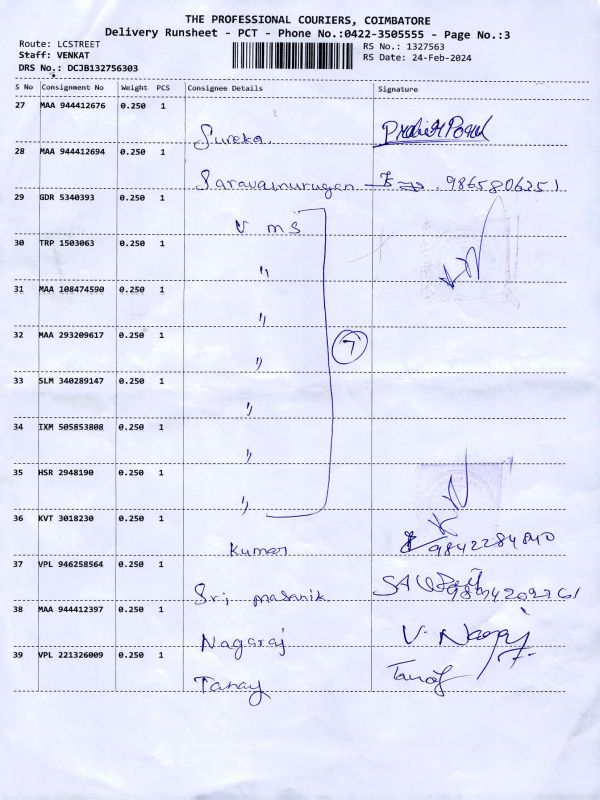 THE PROFESSIONAL COURIERS, COIMBATORE
Delivery Runsheet - PCT - Phone No.:0422-3505555 - Page No.:3
Route: LCSTREET
Staff: VENKAT
DRS No.: DCJB132756303
RS No.: 1327563
RS Date: 24-Feb-2024
S No Consignment No Weight PCS Consignee Details Signature
27 MAA 944412676 0.250 1
Sureka.
28 MAA 944412694 0.250 1
Saravanurugan 9865806251
29 GDR 5340393 0.250 1
V M S
30 TRP 1503063 0.250 1
"
31 MAA 108474590 0.250 1
"
32 MAA 293209617 0.250 1
" 7
33 SLM 340289147 0.250 1
"
34 IXM 505853808 0.250 1
"
35 HSR 2948190 0.250 1
"
36 KVT 3018230 0.250 1
Kumar 9842284840
37 VPL 946258564 0.250 1
Sri masanik
38 MAA 944412397 0.250 1
Nagaraj V. Nagaraj
39 VPL 221326009 0.250 1
Tanay